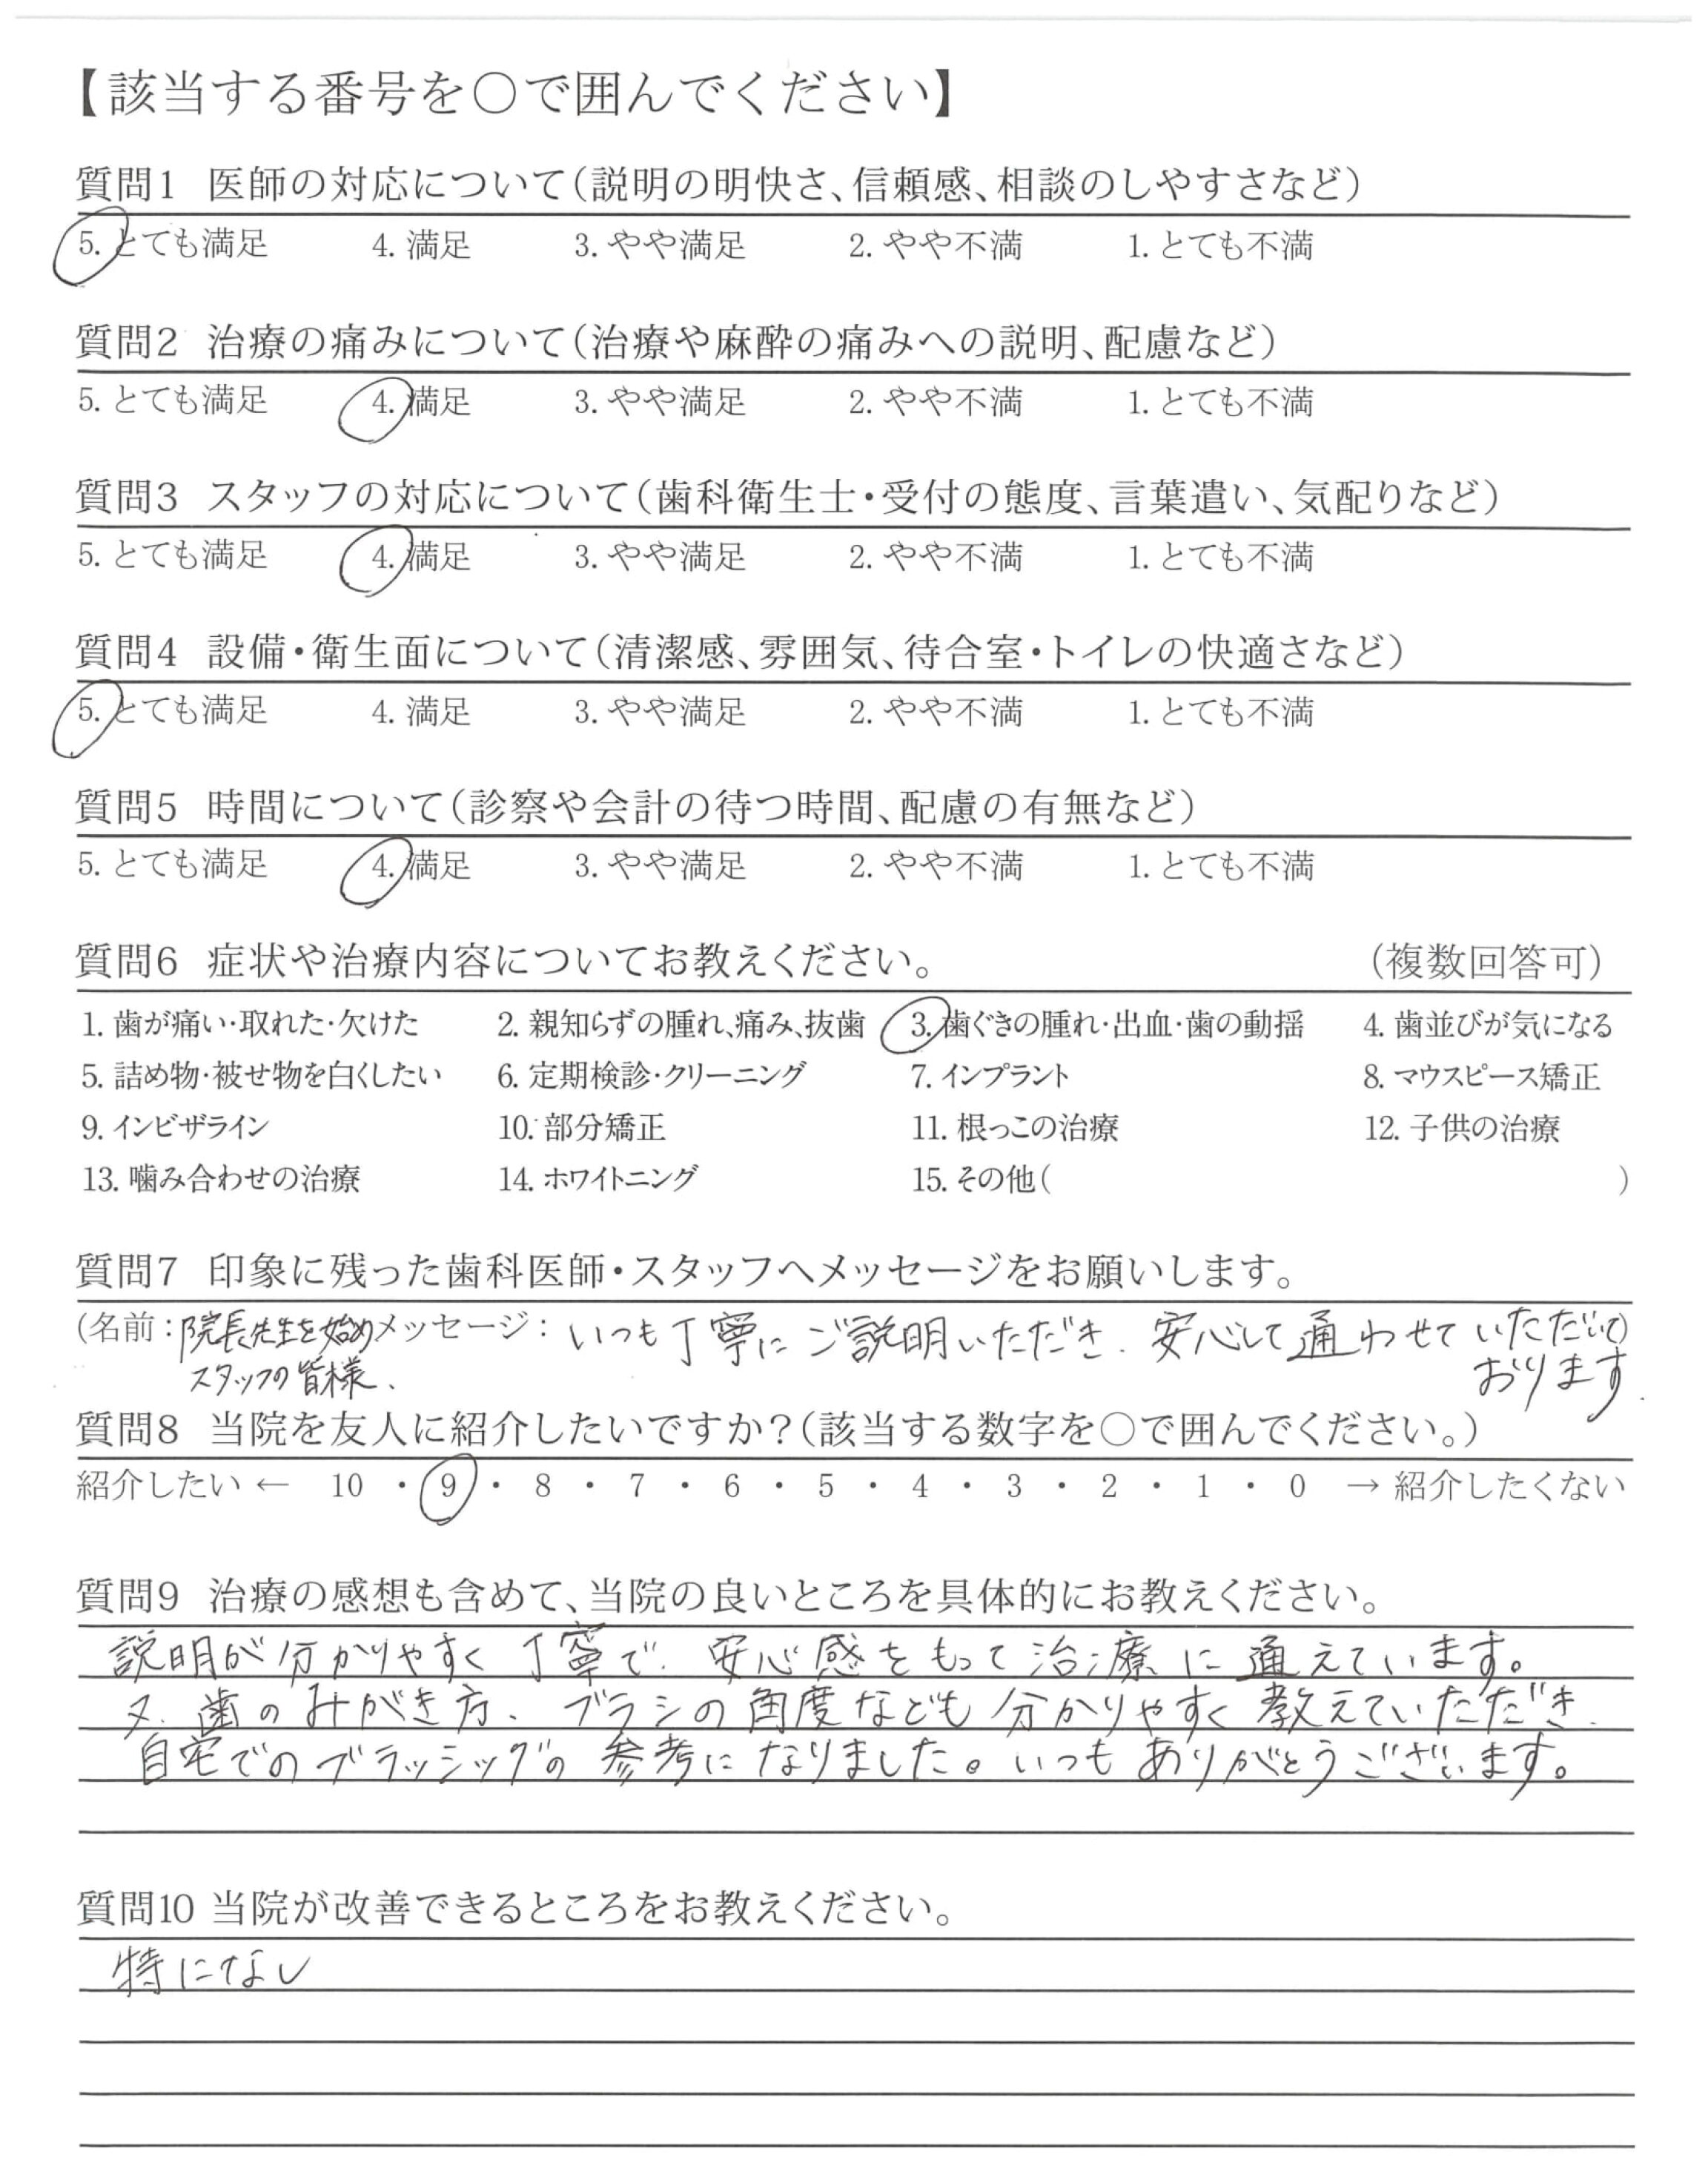 【該当する番号を○で囲んでください】
質問1 医師の対応について（説明の明快さ、信頼感、相談のしやすさなど）
5. とても満足 4. 満足 3. やや満足 2. やや不満 1. とても不満
質問2 治療の痛みについて（治療や麻酔の痛みへの説明、配慮など）
5. とても満足 4. 満足 3. やや満足 2. やや不満 1. とても不満
質問3 スタッフの対応について（歯科衛生士・受付の態度、言葉遣い、気配りなど）
5. とても満足 4. 満足 3. やや満足 2. やや不満 1. とても不満
質問4 設備・衛生面について（清潔感、雰囲気、待合室・トイレの快適さなど）
5. とても満足 4. 満足 3. やや満足 2. やや不満 1. とても不満
質問5 時間について（診察や会計の待つ時間、配慮の有無など）
5. とても満足 4. 満足 3. やや満足 2. やや不満 1. とても不満
質問6 症状や治療内容についてお教えください。 （複数回答可）
1. 歯が痛い・取れた・欠けた 2. 親知らずの腫れ、痛み、抜歯 3. 歯ぐきの腫れ・出血・歯の動揺 4. 歯並びが気になる
5. 詰め物・被せ物を白くしたい 6. 定期検診・クリーニング 7. インプラント 8. マウスピース矯正
9. インビザライン 10. 部分矯正 11. 根っこの治療 12. 子供の治療
13. 噛み合わせの治療 14. ホワイトニング 15. その他（ ）
質問7 印象に残った歯科医師・スタッフへメッセージをお願いします。
（名前：院長先生を始め メッセージ：いつも丁寧にご説明いただき、安心して通わせていただいて）
スタッフの皆様、 おります。
質問8 当院を友人に紹介したいですか？（該当する数字を○で囲んでください。）
紹介したい ← 10 ・ 9 ・ 8 ・ 7 ・ 6 ・ 5 ・ 4 ・ 3 ・ 2 ・ 1 ・ 0 → 紹介したくない
質問9 治療の感想も含めて、当院の良いところを具体的にお教えください。
説明が分かりやすく丁寧で、安心感をもって治療に通えています。
又、歯のみがき方、ブラシの角度なども分かりやすく教えていただき、
自宅でのブラッシングの参考になりました。いつもありがとうございます。
質問10 当院が改善できるところをお教えください。
特になし